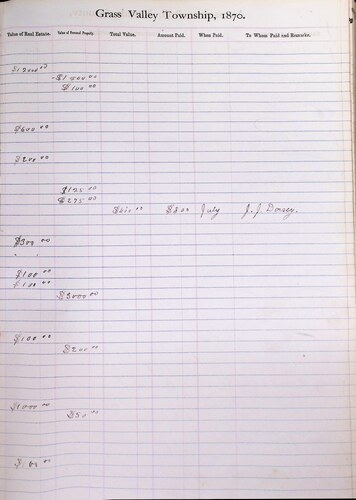 Grass Valley Township, 1870.
Value of Real Estate. Value of Personal Property. Total Value. Amount Paid. When Paid. To Whom Paid and Remarks.
$1400 00
$100 00
$600 00
$200 00
$125 00
$235 00
July J. J. Dorsey.
$300 00
$100 00
$100 00
$3000 00
$100 00
$200 00
$1000 00
$50 00